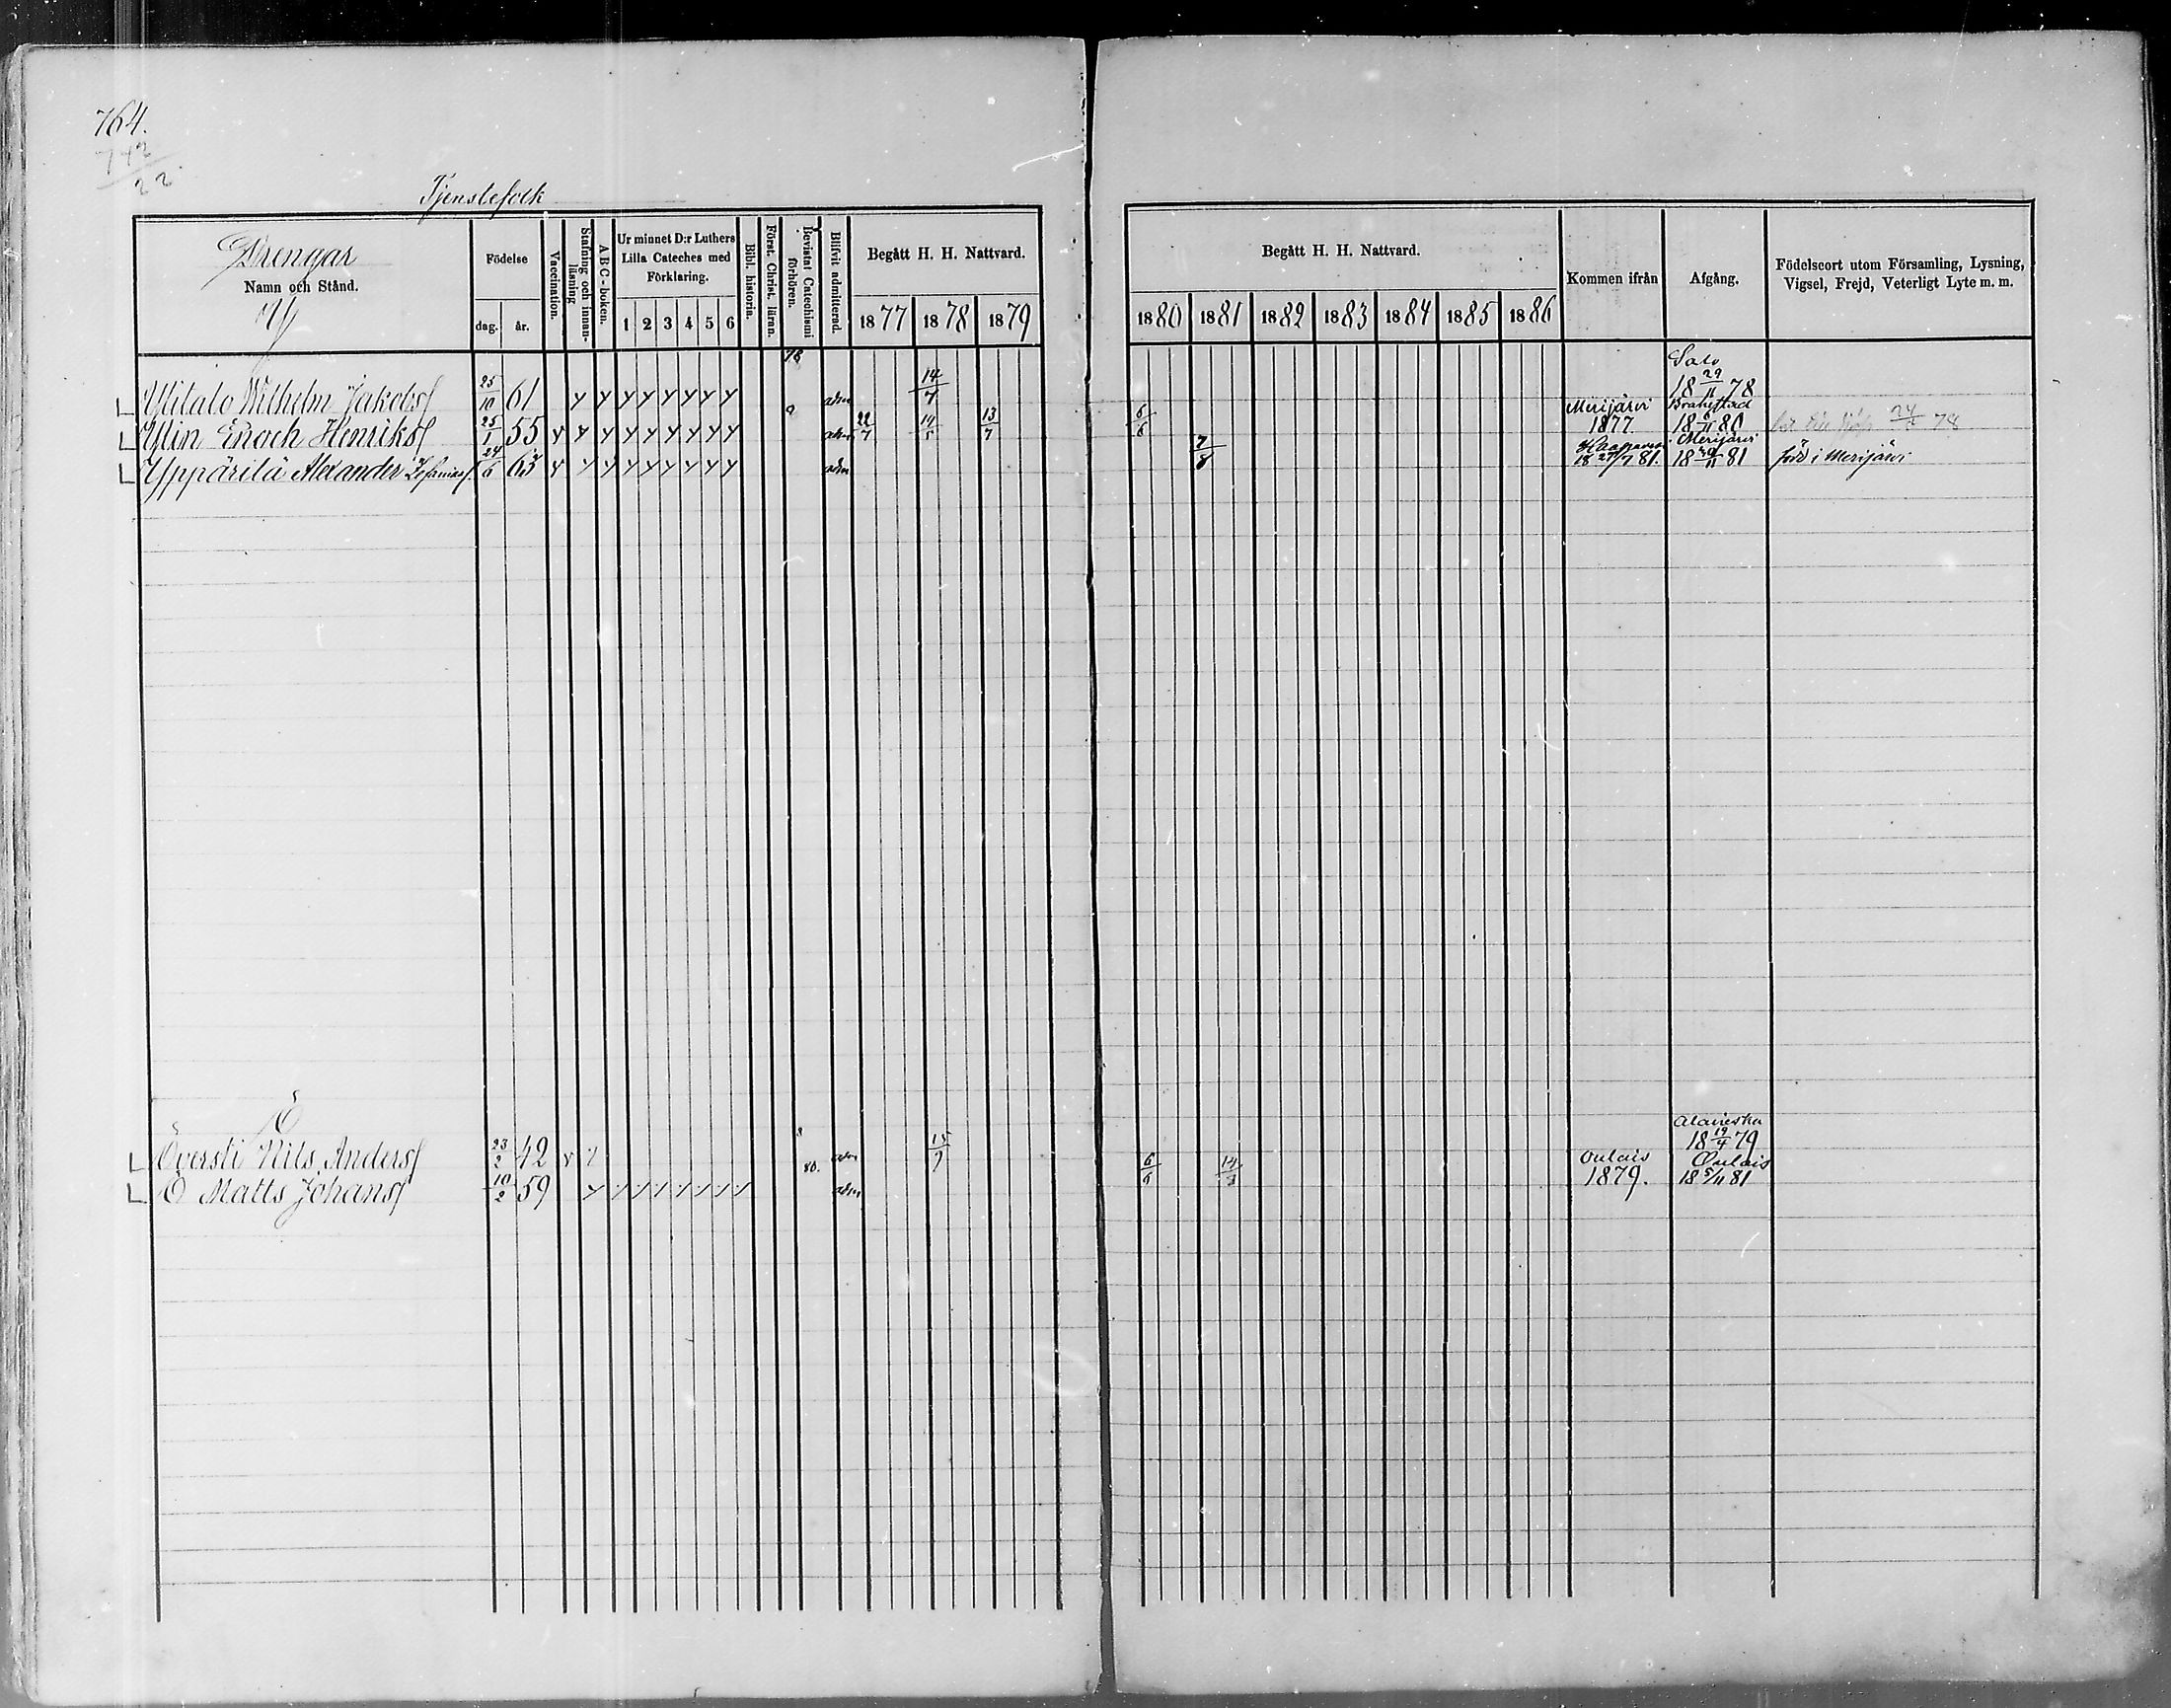 764.
742
22.
Tjenstefolk
Drengar
Namn och Stånd.
Y
Födelse
dag. år.
Vaccination.
Stafning och innan-läsning
A B C - boken.
Ur minnet D:r Luthers Lilla Cateches med Förklaring.
1 2 3 4 5 6
Bibl. historia.
Först. Christ. läran.
Bevistat Catechismi förhören.
Blifvit admitterad.
Begått H. H. Nattvard.
1877 1878 1879
Begått H. H. Nattvard.
1880 1881 1882 1883 1884 1885 1886
Kommen ifrån
Afgång.
Födelseort utom Församling, Lysning, Vigsel, Frejd, Veterligt Lyte m. m.
78 Salo
Ylitalo Wilhelm Jakobsf 25/10 61 adm 14/7 18 29/11 78
9 Merijärvi Brahestad
Ylin Enoch Henriksf 25/1 55 adm 22/7 14/5 13/7 6/6 1877 18 6/11 80 78
Merijärvi
Yppärilä Alexander Johansf. 24/6 63 adm 7/8 18 27/7 81. 18 81 född i Merijärvi
Ö
8 Alavieska
Översti Nils Andersf 23/2 42 adm 15/9 18 19/4 79
80. Oulais Oulais
Ö Matts Johansf 10/2 59 adm 6/6 14/8 1879. 18 5/11 81